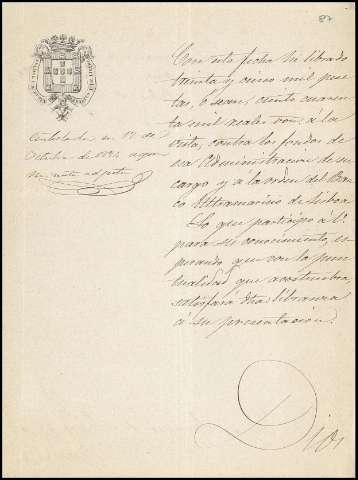 87
Con esta fecha he librado
treinta y cinco mil pese
tas, o sean, ciento cuaren
ta mil reales von; a la
vista, contra los fondos de
esa Administracion de su
cargo y á la orden del Ban
co Ultramarino de Lisboa.
Lo que participo á V.
para su conocimiento, es
perando que con la pun
tualidad que acostumbra,
satisfará dha libranza
á su presentacion.
Contestada en 12 de
Octubre de
Dios